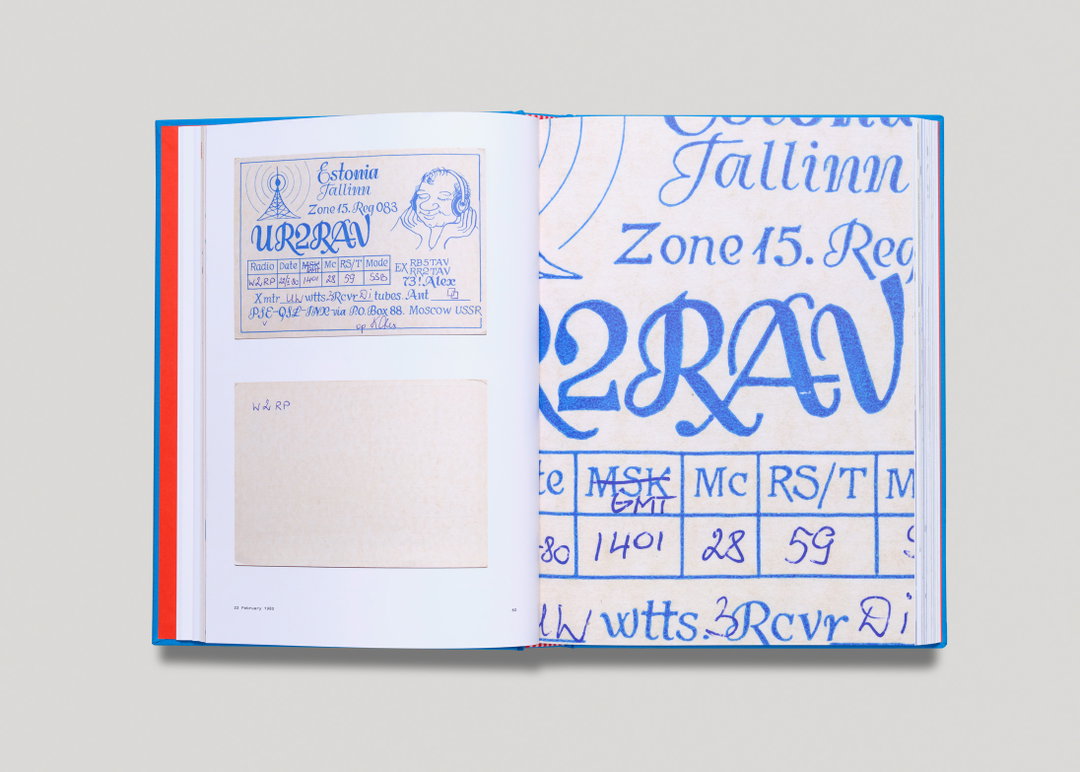 Estonia
Tallinn
Zone 15. Reg 083
UR2RAV
Radio Date MSK GMT Mc RS/T Mode
W2RP 1401 28 59 SSB
EX RB5TAV
RR2TAV
73! Alex
Xmtr UW wtts. 3 Rcvr Di tubes. Ant
PSE-QSL-TNX-via P.O. Box 88. Moscow USSR
op
W2RP
February
52
Estonia
Tallinn
Zone 15. Reg
R2RAV
te MSK GMT Mc RS/T M
-80 1401 28 59 S
UW wtts. 3 Rcvr Di